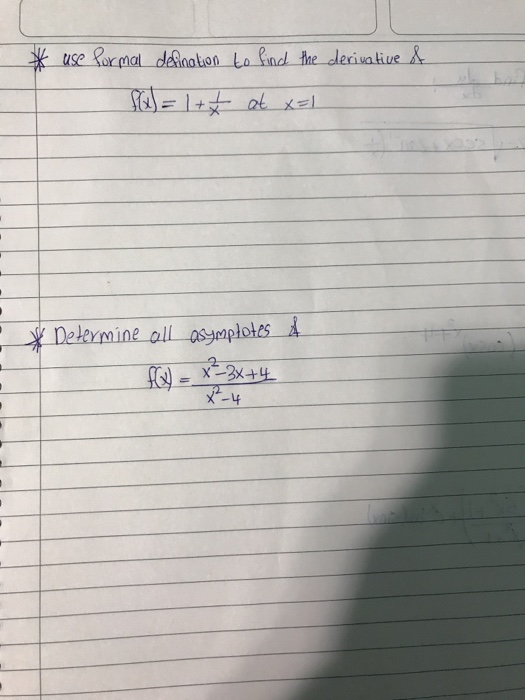 * use formal defination to find the derivative of
f(x) = 1 + 1/x at x=1
* Determine all asymptotes of
f(x) = x²-3x+4 / x²-4